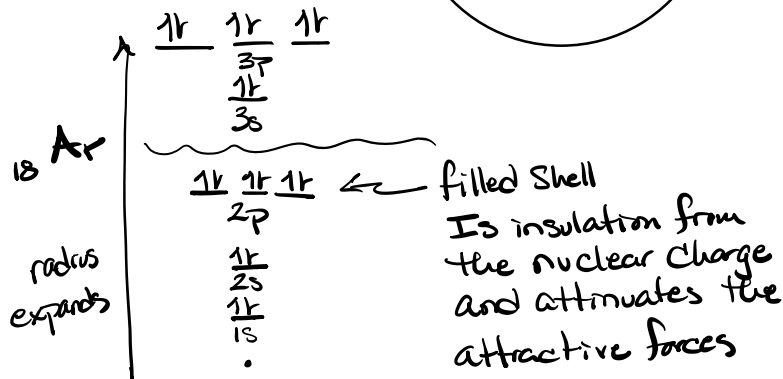 1r 1r 1r
3p
1r
3s
18 Ar
1r 1r 1r
2p
1r
2s
1r
1s
radius
expands
filled Shell
Is insulation from
the nuclear charge
and attinuates the
attractive forces